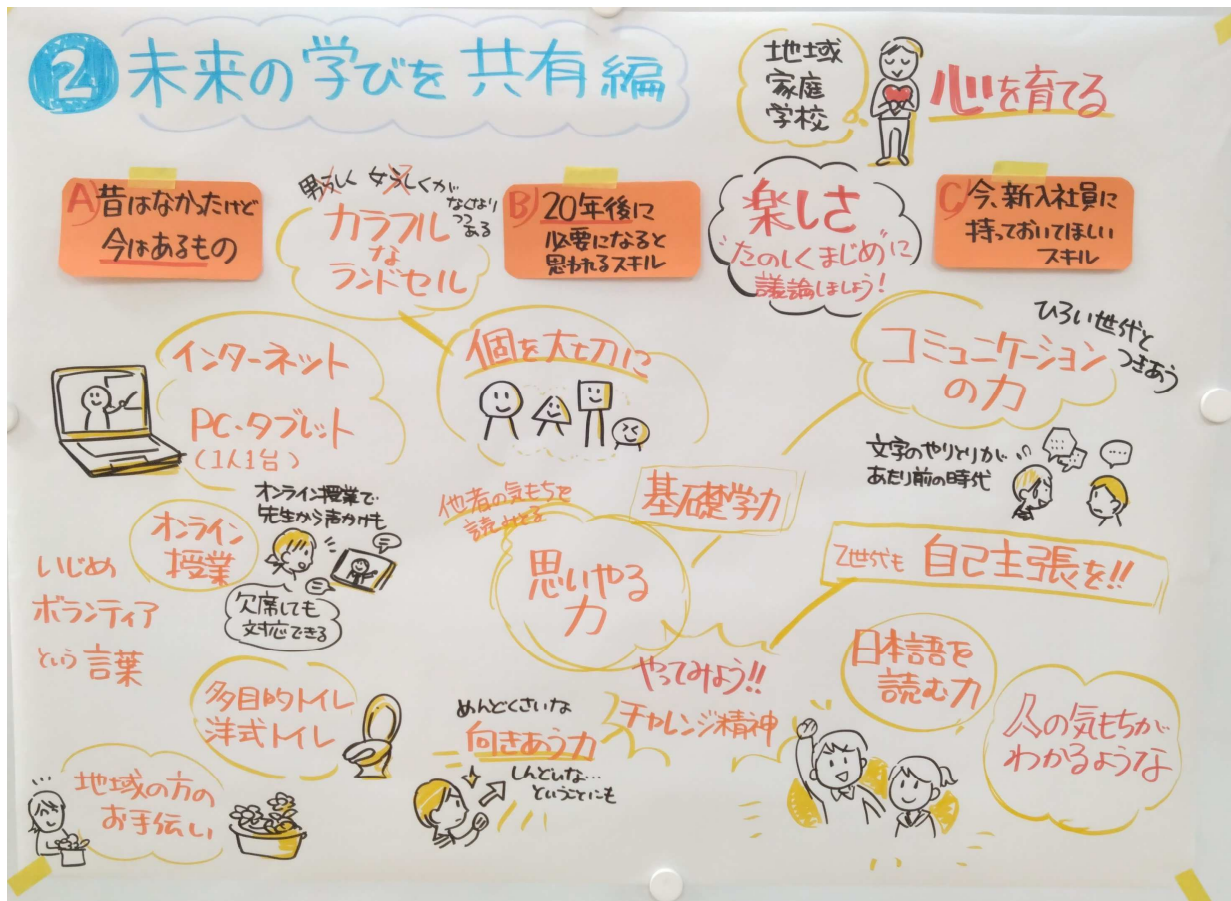 2 未来の学びを共有編
地域
家庭
学校
心を育てる
A) 昔はなかったけど
今はあるもの
男らしく 女らしくが
なくなり
つつ
ある
カラフル
な
ランドセル
B) 20年後に
必要になると
思われるスキル
楽しさ
"たのしくまじめ"に
議論しましょう!
C) 今、新入社員に
持っておいてほしい
スキル
インターネット
PC・タブレット
(1人1台)
個を大切に
コミュニケーション
の力
ひろい世代と
つきあう
文字のやりとりが
あたり前の時代
オンライン
授業
オンライン授業で
先生から声かけも
欠席しても
対応できる
他者の気もちを
読みとる
基礎学力
思いやる
力
Z世代も 自己主張を!!
いじめ
ボランティア
という言葉
多目的トイレ
洋式トイレ
地域の方の
お手伝い
めんどくさいな
向きあう力
しんどいな…
ということにも
やってみよう!!
チャレンジ精神
日本語を
読む力
人の気もちが
わかるような